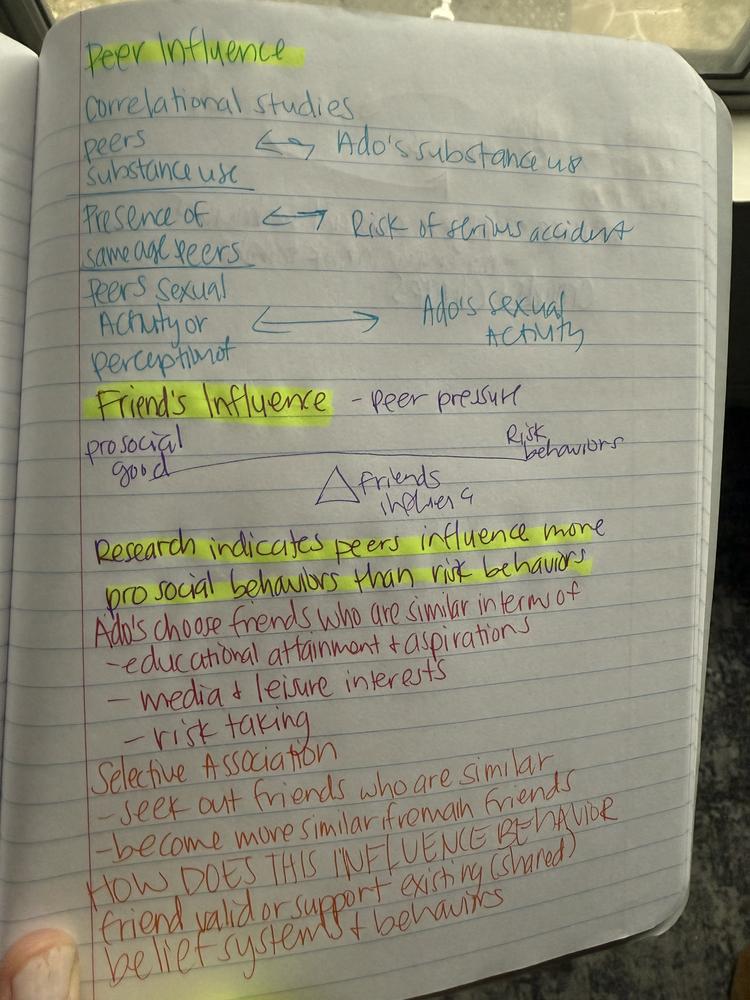 Peer Influence
Correlational studies
peers ↔ Ado's substance us
substance use
Presence of ↔ Risk of serius accident
same age peers
Peers sexual
Activity or ↔ Ado's sexual
perception of Activity
Friend's Influence - peer pressure
prosocial Risk
good behaviors
△ friends
Research indicates peers influence more
pro social behaviors than risk behaviors
Ado's choose friends who are similar in terms of
- educational attainment + aspirations
- media + leisure interests
- risk taking
Selective Association
- seek out friends who are similar
- become more similar if remain friends
HOW DOES THIS INFLUENCE BEHAVIOR
friend valid or support existing (shared)
belief systems + behaviors